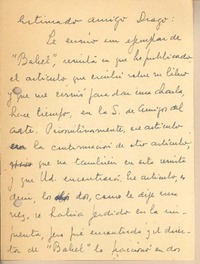 Estimado amigo Drago:
Le envío un ejemplar de
"Babel", revista en que he publicado
el artículo que escribí sobre su libro
y que me sirvió para dar una charla,
hace tiempo, en la S. de Amigos del
Arte. Primitivamente, ese artículo
era la continuación de otro artículo,
que va también en esta revista
y que Ud. encontrará. El artículo, es
decir, los dos, como le dije una
vez, se había perdido en la im-
prenta, pero fué encontrado y el direc-
tor de "Babel" lo fraccionó en dos